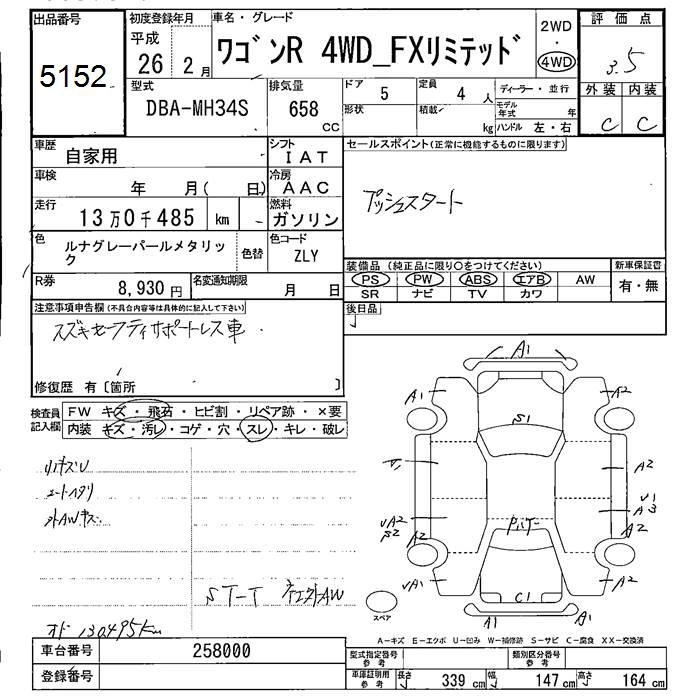 出品番号
5152
初度登録年月
平成
26 2月
車名・グレード
ワゴンR 4WD_FXリミテッド
2WD
・
4WD
評価点
3.5
外装 内装
C C
型式
DBA-MH34S
排気量
658
cc
ドア 5
形状
定員 4 人
積載 kg
ディーラー・並行
モデル年式 年
ハンドル 左・右
車歴 自家用
シフト
IAT
車検 年 月( 日)
冷房
AAC
走行 13万0千485 km
燃料
ガソリン
色 ルナグレーパールメタリック
色替
色コード
ZLY
R券 8,930円
名変通知期限 月 日
セールスポイント(正常に機能するものに限ります)
プッシュスタート
装備品(純正品に限り〇をつけてください)
PS PW ABS エアB AW
SR ナビ TV カワ
新車保証書
有・無
後日品
注意事項申告欄(不具合内容等は具体的に記入して下さい)
スズキセーフティサポートレス車
修復歴 有〔箇所 〕
検査員記入欄
FW キズ・飛石・ヒビ割・リペア跡・×要
内装 キズ・汚レ・コゲ・穴・スレ・キレ・破レ
オド 130495km
車台番号 258000
登録番号
A1
A1
A2
S1
A2
V1
A3
A2
A2
VA2
S2
A2
VA1
C1
A1
A1
スペア
A-キズ E-エクボ U-凹み W-補修跡 S-サビ C-腐食 XX-交換済
型式指定番号
参考
類別区分番号
参考
車庫証明用
参考
長さ 339 cm 幅 147 cm 高さ 164 cm